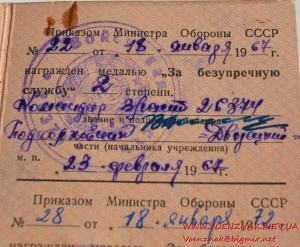 Приказом Министра Обороны СССР
№ 22 от „18“ января 1967 г.
награжден медалью „За безупречную
службу“ 2 степени.
Командир части 26874
звание и подпись
Подполковник
части (начальника учреждения)
м. п. 23 февраля 1967 г.
Приказом Министра Обороны СССР
№ 28 от „18“ января 1972
награжден медалью „За безупречную
WWW.VOENZNAK.NET.UA
Vaenznak@bigmir.net